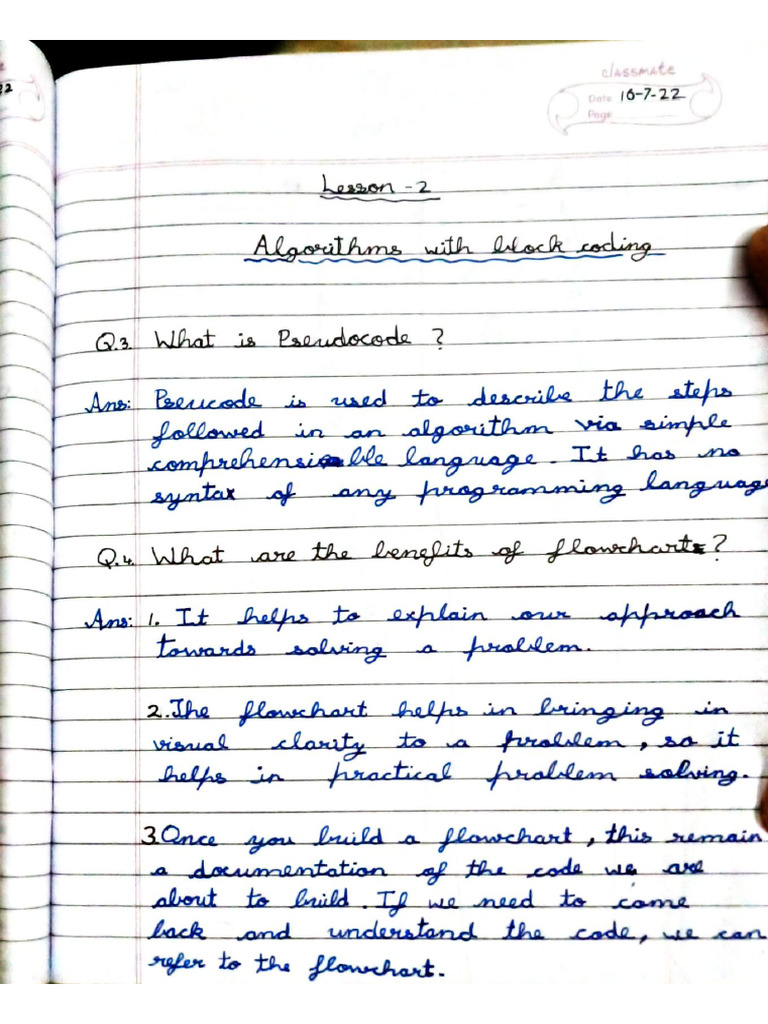 classmate
Date 16-7-22
Page
22
Lesson - 2
Algorithms with block coding
Q.3. What is Pseudocode ?
Ans: Pseucode is used to describe the steps
followed in an algorithm via simple
comprehensible language. It has no
syntax of any programming language
Q.4. What are the benefits of flowcharts?
Ans: 1. It helps to explain our approach
towards solving a problem.
2. The flowchart helps in bringing in
visual clarity to a problem, so it
helps in practical problem solving.
3. Once you build a flowchart, this remain
a documentation of the code we are
about to build. If we need to come
back and understand the code, we can
refer to the flowchart.